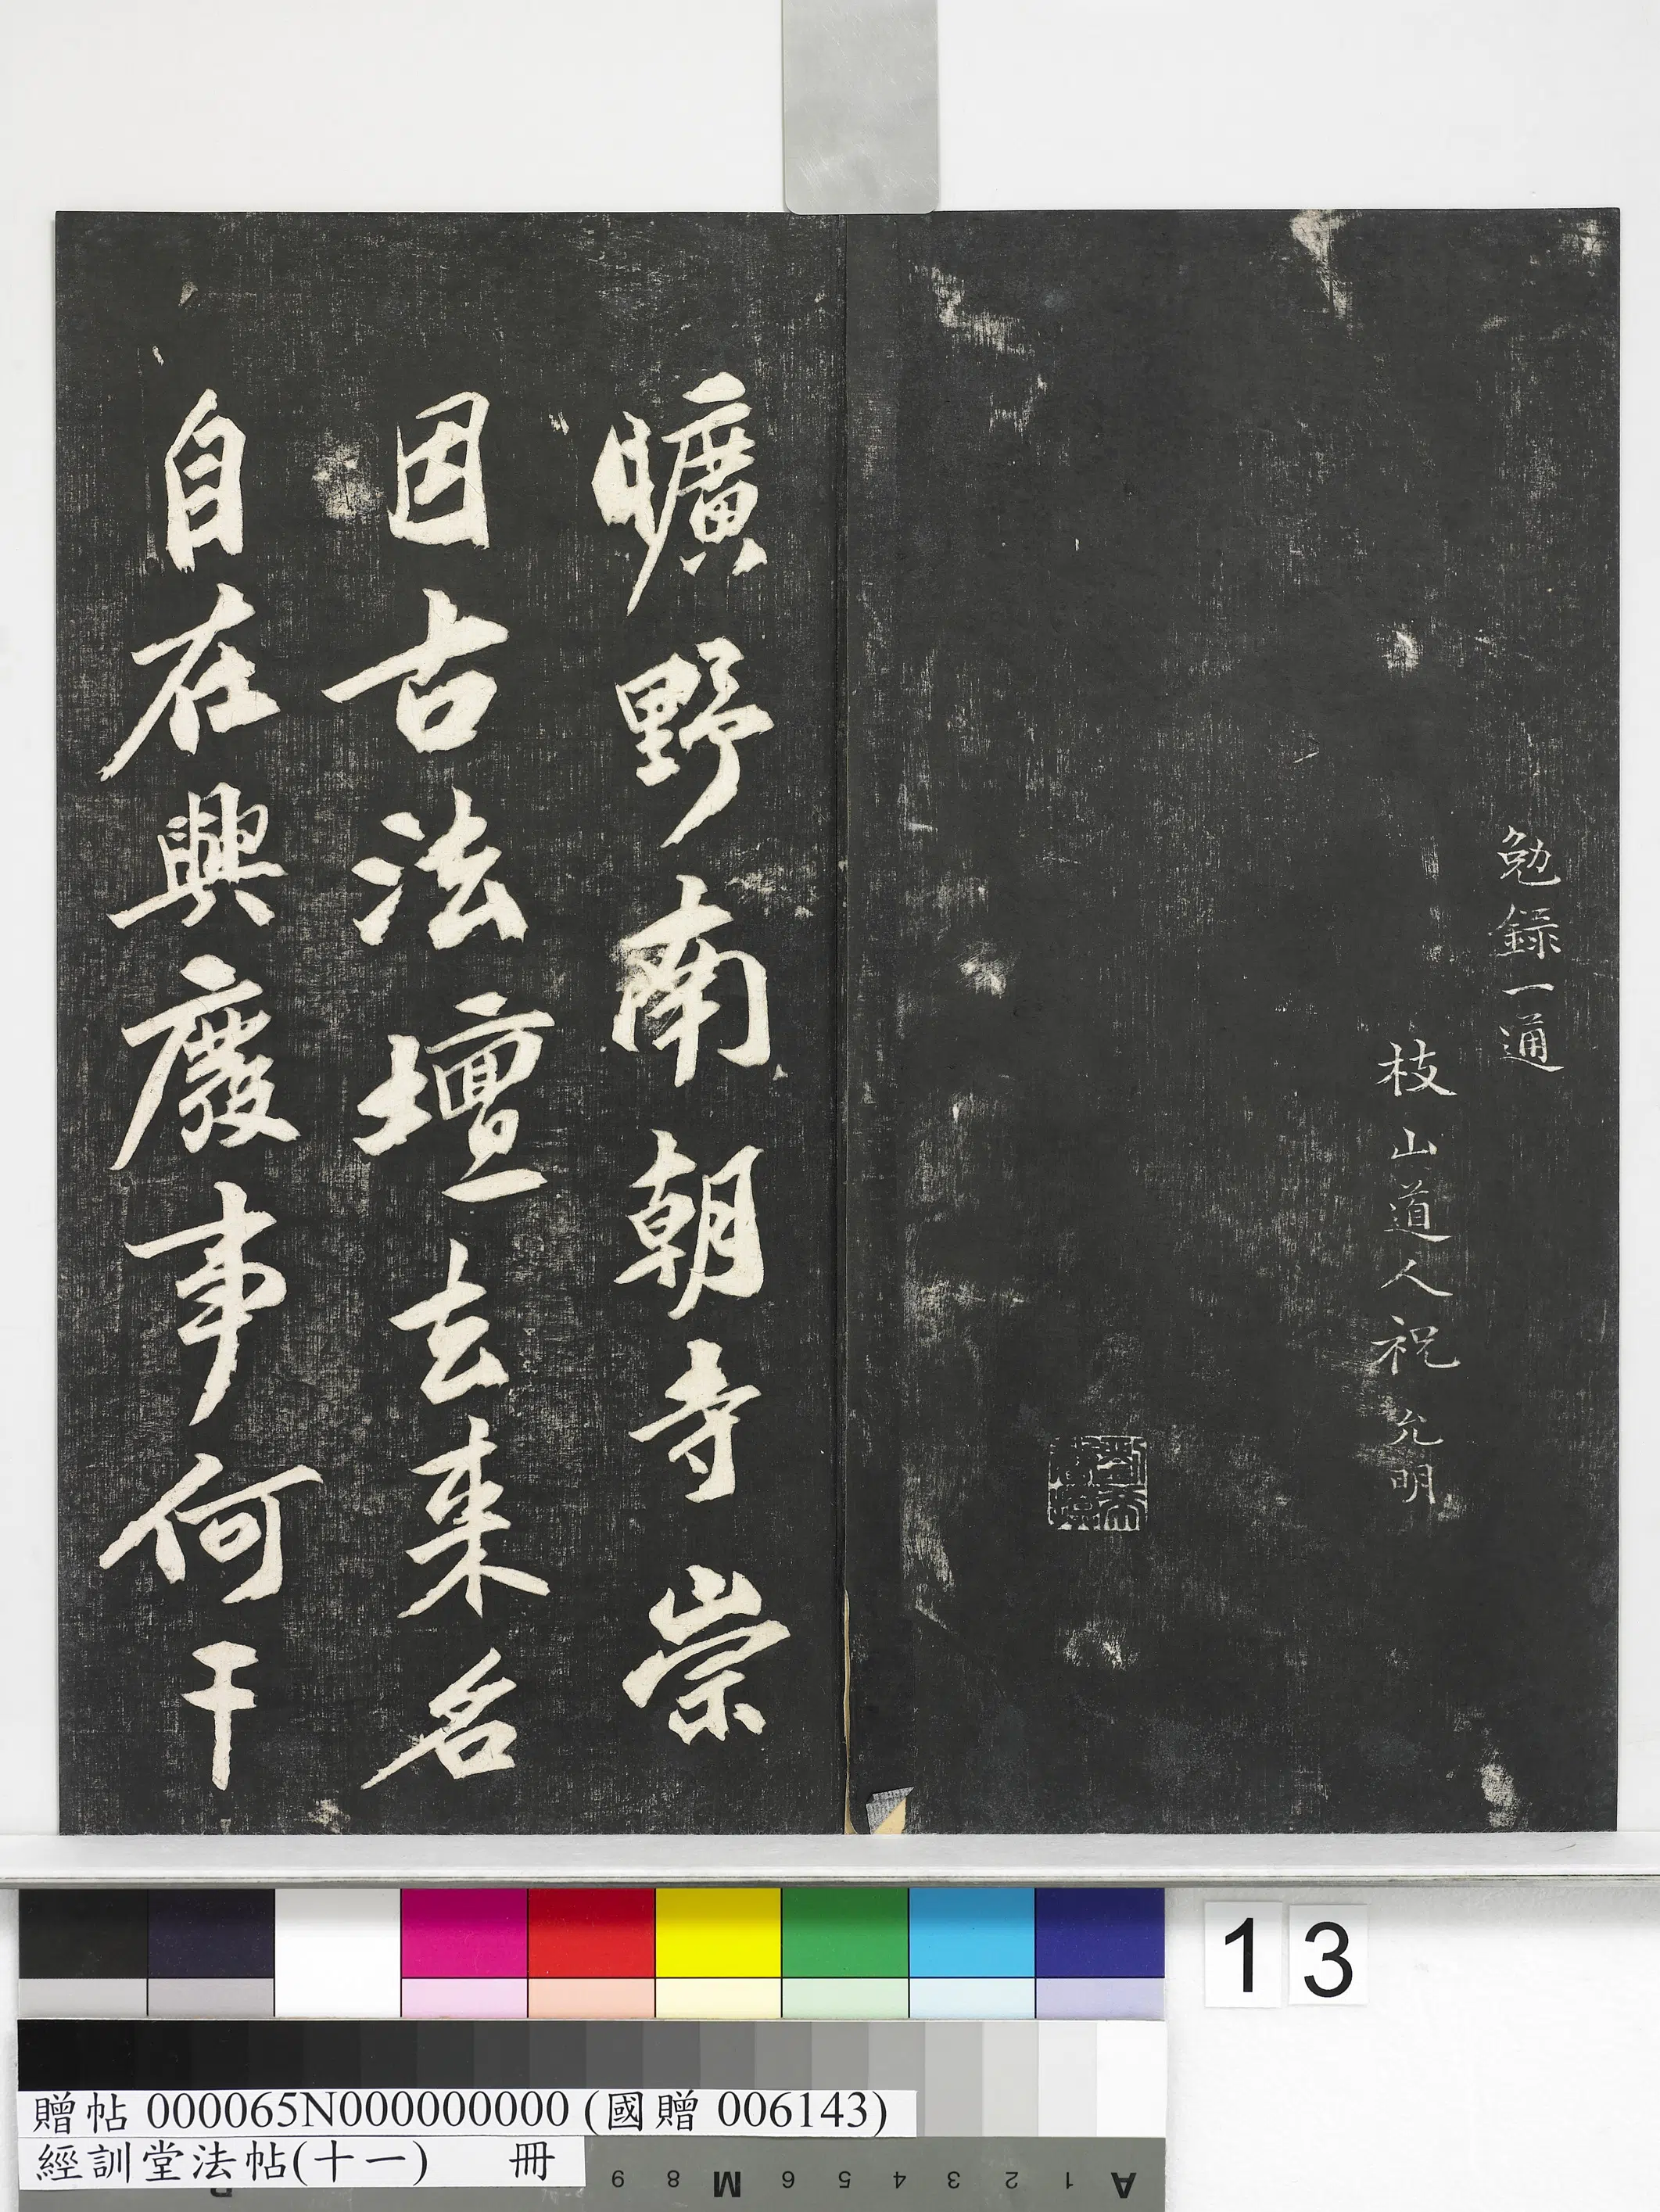 勉錄一通
枝山道人祝允明
曠野南朝寺崇
因古法壇去来名
自在興廢事何干
13
贈帖 000065N000000000 (國贈 006143)
經訓堂法帖(十一) 冊
A 1 2 3 4 5 6 M 8 9